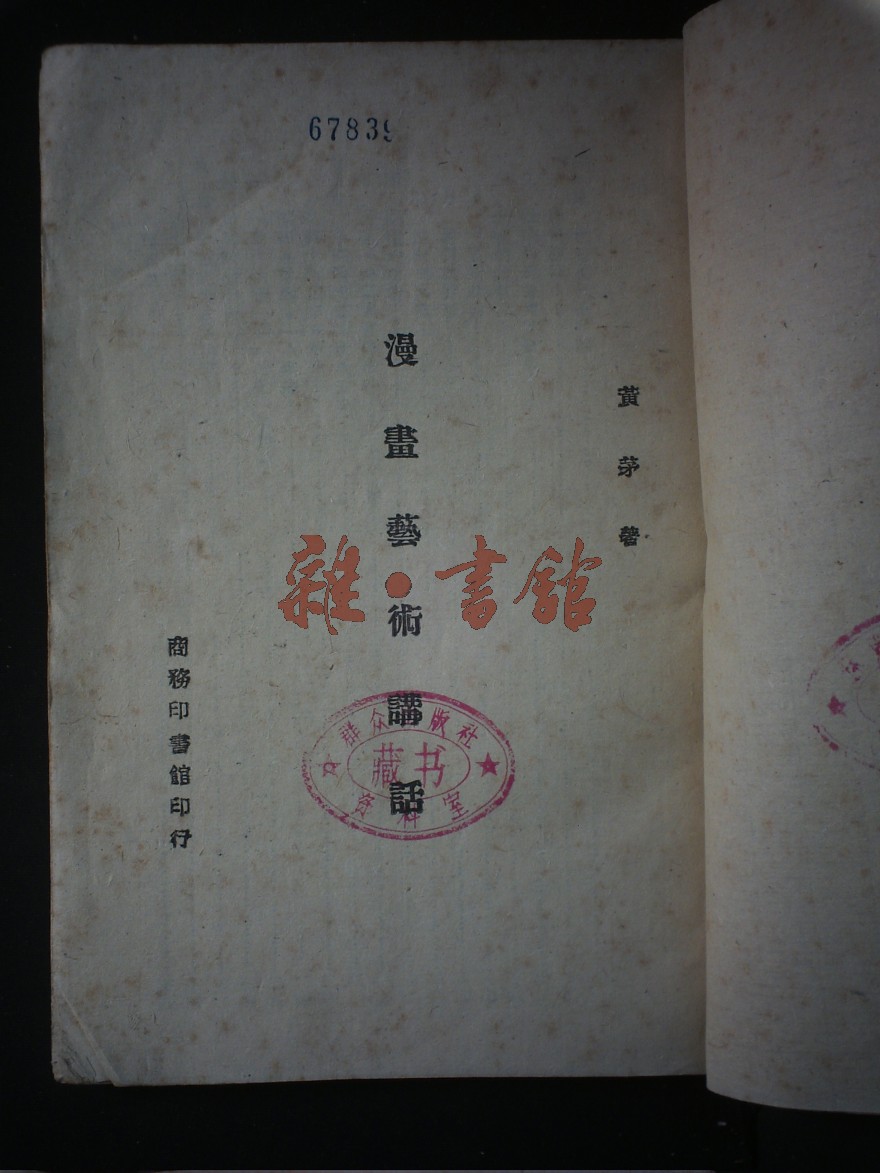 67839
黃茅著
漫畫藝術講話
商務印書館印行
雜·書館
群众出版社
藏书
资料室